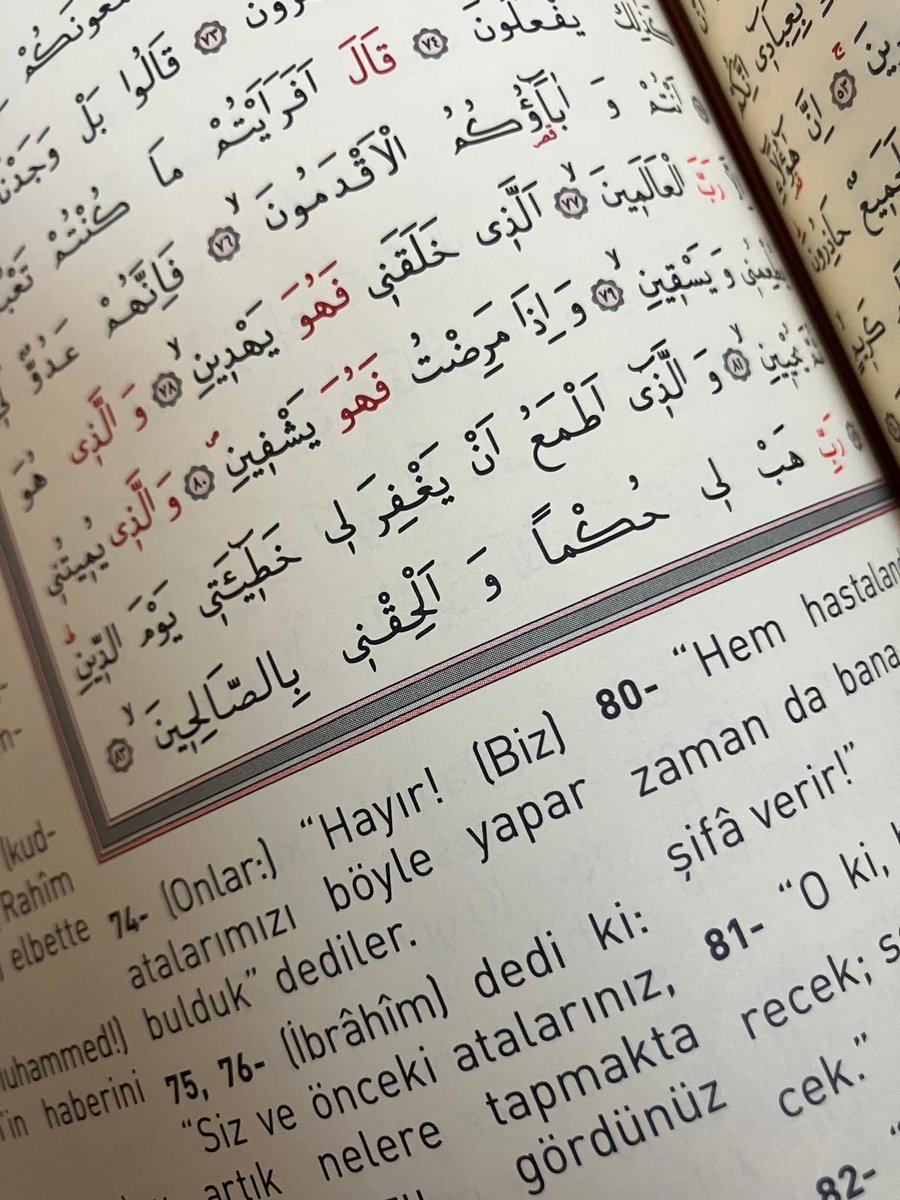 يَفْعَلُونَ ﴿٧٤﴾ قَالَ اَفَرَاَيْتُمْ مَا كُنْتُمْ
﴿٧٣﴾ قَالُوا بَلْ
اَنْتُمْ وَ اٰبَٓاؤُ۬كُمُ الْاَقْدَمُونَ ﴿٧٦﴾ فَاِنَّهُمْ عَدُوٌّ
رَبَّ الْعَالَمِينَ ﴿٧٧﴾ اَلَّذِى خَلَقَنِى فَهُوَ يَهْدِينِ ﴿٧٨﴾ وَ الَّذِى هُوَ
وَ يَسْقِينِ ﴿٧٩﴾ وَ اِذَا مَرِضْتُ فَهُوَ يَشْفِينِ ﴿٨٠﴾ وَ الَّذِى يُمِيتُنِى
﴿٨١﴾ وَ الَّذِٓى اَطْمَعُ اَنْ يَغْفِرَ لِى خَطِٓيـَٔتِى يَوْمَ الدِّينِ
رَبِّ هَبْ لِى حُكْمًا وَ اَلْحِقْنِى بِالصَّالِحِينَ ﴿٨٣﴾
اِنَّ هٰٓؤُلَٓاءِ
حَاذِرُونَ
(kud-
Rahîm
elbette
Muhammed!)
haberini
74- (Onlar:) “Hayır! (Biz)
atalarımızı böyle yapar
bulduk” dediler.
75, 76- (İbrâhîm) dedi ki:
“Siz ve önceki atalarınız,
artık nelere tapmakta
gördünüz
80- “Hem
zaman da bana
şifâ verir!”
81- “O ki,
recek;
cek.”
82-